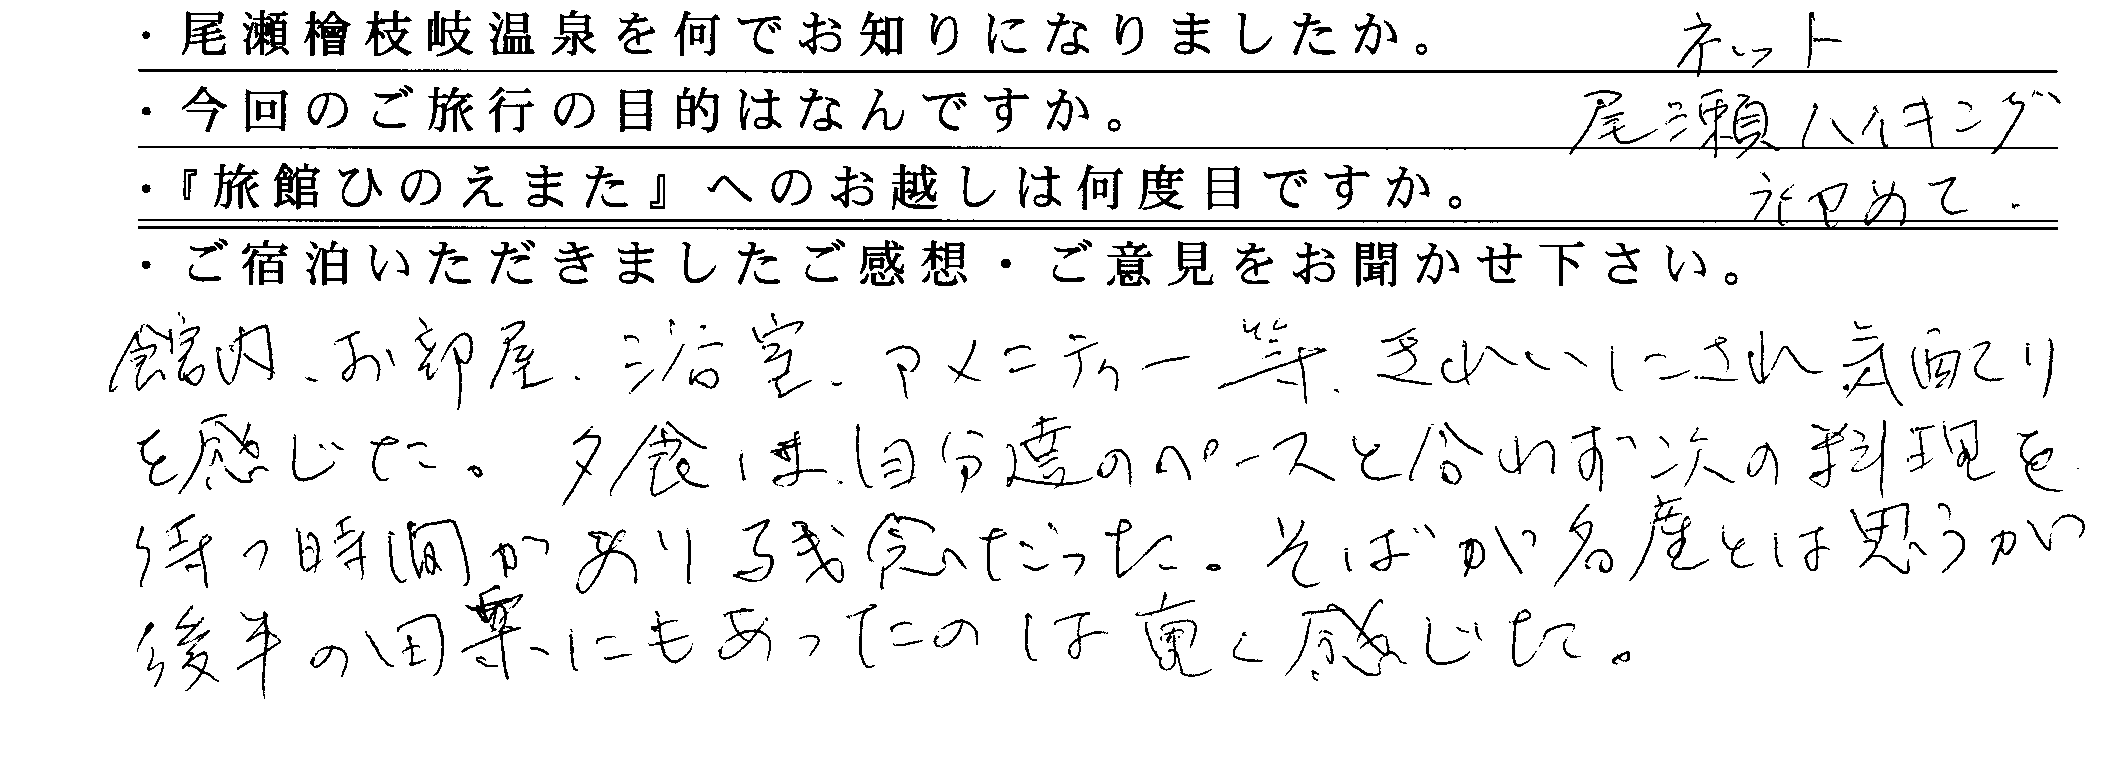 ・尾瀬檜枝岐温泉を何でお知りになりましたか。 ネット
・今回のご旅行の目的はなんですか。 尾瀬ハイキング
・『旅館ひのえまた』へのお越しは何度目ですか。 初めて.
・ご宿泊いただきましたご感想・ご意見をお聞かせ下さい。
館内、お部屋、浴室、アメニティー等、きれいにされ気配り
を感じた。夕食は、自分達のペースと合わず次の料理を
待つ時間があり残念だった。そばが名産とは思うがい
後半の田楽にもあったのは重く感じた。